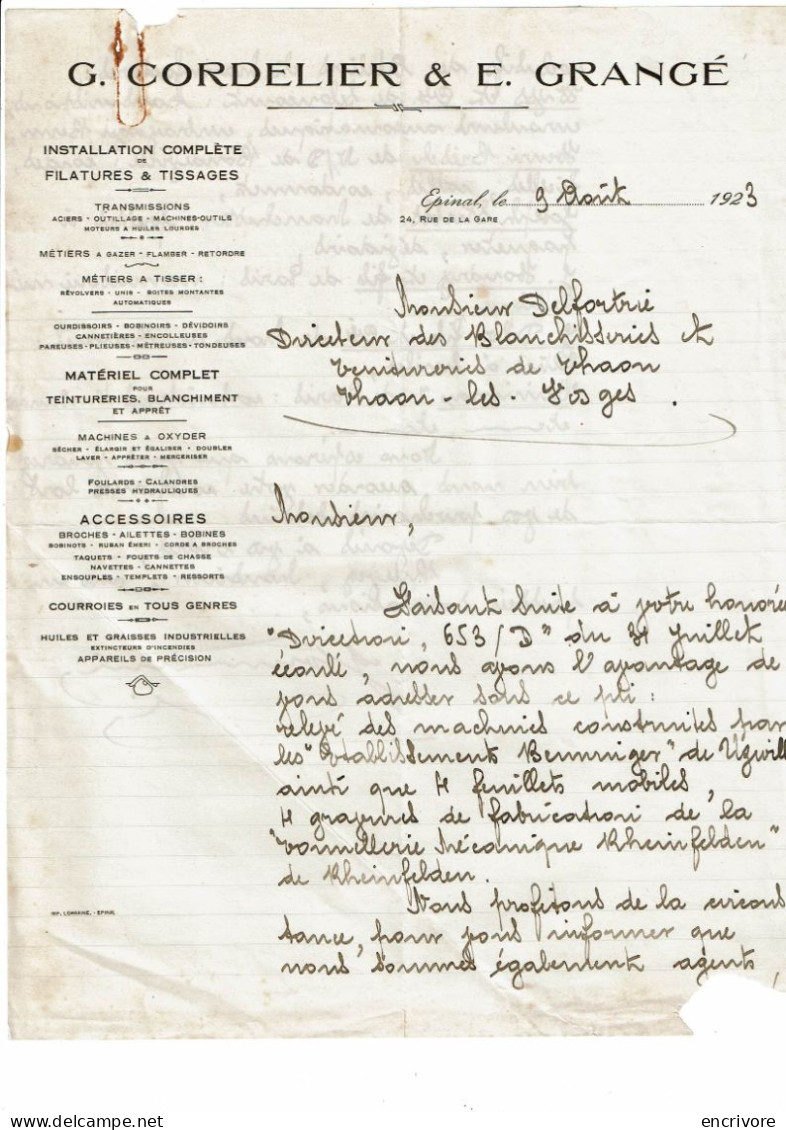 G. CORDELIER & E. GRANGÉ
INSTALLATION COMPLÈTE
DE
FILATURES & TISSAGES
TRANSMISSIONS
ACIERS - OUTILLAGE - MACHINES-OUTILS
MOTEURS A HUILES LOURDES
MÉTIERS A GAZER - FLAMBER - RETORDRE
MÉTIERS A TISSER :
RÉVOLVERS - UNIS - BOITES MONTANTES
AUTOMATIQUES
OURDISSOIRS - BOBINOIRS - DÉVIDOIRS
CANNETIÈRES - ENCOLLEUSES
PAREUSES - PLIEUSES - MÉTREUSES - TONDEUSES
MATÉRIEL COMPLET
POUR
TEINTURERIES, BLANCHIMENT
ET APPRÊT
MACHINES A OXYDER
SÉCHER - ÉLARGIR ET ÉGALISER - DOUBLER
LAVER - APPRÊTER - MERCERISER
FOULARDS - CALANDRES
PRESSES HYDRAULIQUES
ACCESSOIRES
BROCHES - AILETTES - BOBINES
BOBINOTS - RUBAN ÉMERI - CORDE A BROCHES
TAQUETS - FOUETS DE CHASSE
NAVETTES - CANNETTES
ENSOUPLES - TEMPLETS - RESSORTS
COURROIES EN TOUS GENRES
HUILES ET GRAISSES INDUSTRIELLES
EXTINCTEURS D'INCENDIES
APPAREILS DE PRÉCISION
IMP. LORRAINE, - EPINAL
Epinal, le 9 Août 1923
24, RUE DE LA GARE
Monsieur Delfortrie
Directeur des Blanchisseries et
Teintureries de Thaon
Thaon-les-Vosges.
Monsieur,
Faisant suite à votre honorée
"Direction, 653/D" du 31 Juillet
écoulé, nous avons l'avantage de
vous adresser sous ce pli :
relevé des machines construites par
les "Etablissements Benninger" de Uzwill
ainsi que 4 feuillets mobiles,
4 gravures de fabrication de la
"Tonnellerie Mécanique Rheinfelden"
de Rheinfelden.
Nous profitons de la circons
tance, pour vous informer que
nous sommes également agents,
encrivore